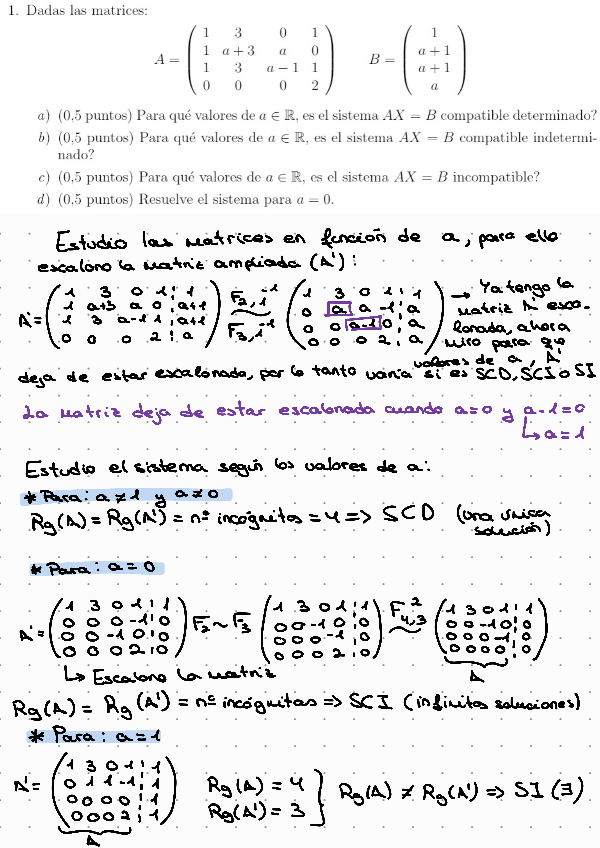 1. Dadas las matrices:
A = ( 1 3 0 1 ; 1 a+3 a 0 ; 1 3 a−1 1 ; 0 0 0 2 ) B = ( 1 ; a+1 ; a+1 ; a )
a) (0,5 puntos) Para qué valores de a ∈ ℝ, es el sistema AX = B compatible determinado?
b) (0,5 puntos) Para qué valores de a ∈ ℝ, es el sistema AX = B compatible indetermi-
nado?
c) (0,5 puntos) Para qué valores de a ∈ ℝ, es el sistema AX = B incompatible?
d) (0,5 puntos) Resuelve el sistema para a = 0.
Estudio las matrices en función de a, para ello
escalono la matriz ampliada (A'):
A' = ( 1 3 0 1 | 1 ; 1 a+3 a 0 | a+1 ; 1 3 a-1 1 | a+1 ; 0 0 0 2 | a ) F₂,₁⁻¹ F₃,₁⁻¹ ~ ( 1 3 0 1 | 1 ; 0 a a -1 | a ; 0 0 a-1 0 | a ; 0 0 0 2 | a ) → Ya tengo la
matriz A' esca-
lonada, ahora
miro para que
valores de a, A'
deja de estar escalonada, por lo tanto varía si es SCD, SCI o SI
La matriz deja de estar escalonada cuando a=0 y a-1=0
↳ a=1
Estudio el sistema según los valores de a:
* Para: a ≠ 1 y a ≠ 0
Rg(A) = Rg(A') = nº incógnitas = 4 => SCD (una única
solución)
* Para: a = 0
A' = ( 1 3 0 1 | 1 ; 0 0 0 -1 | 0 ; 0 0 -1 0 | 0 ; 0 0 0 2 | 0 ) F₂ ~ F₃ ( 1 3 0 1 | 1 ; 0 0 -1 0 | 0 ; 0 0 0 -1 | 0 ; 0 0 0 2 | 0 ) F₄,₃² ~ ( 1 3 0 1 | 1 ; 0 0 -1 0 | 0 ; 0 0 0 -1 | 0 ; 0 0 0 0 | 0 )
A
↳ Escalono la matriz
Rg(A) = Rg(A') = nº incógnitas => SCI (infinitas soluciones)
* Para: a = 1
A' = ( 1 3 0 1 | 1 ; 0 1 1 -1 | 1 ; 0 0 0 0 | 1 ; 0 0 0 2 | 1 ) Rg(A) = 4 Rg(A') = 3 } Rg(A) ≠ Rg(A') => SI (∃)
A